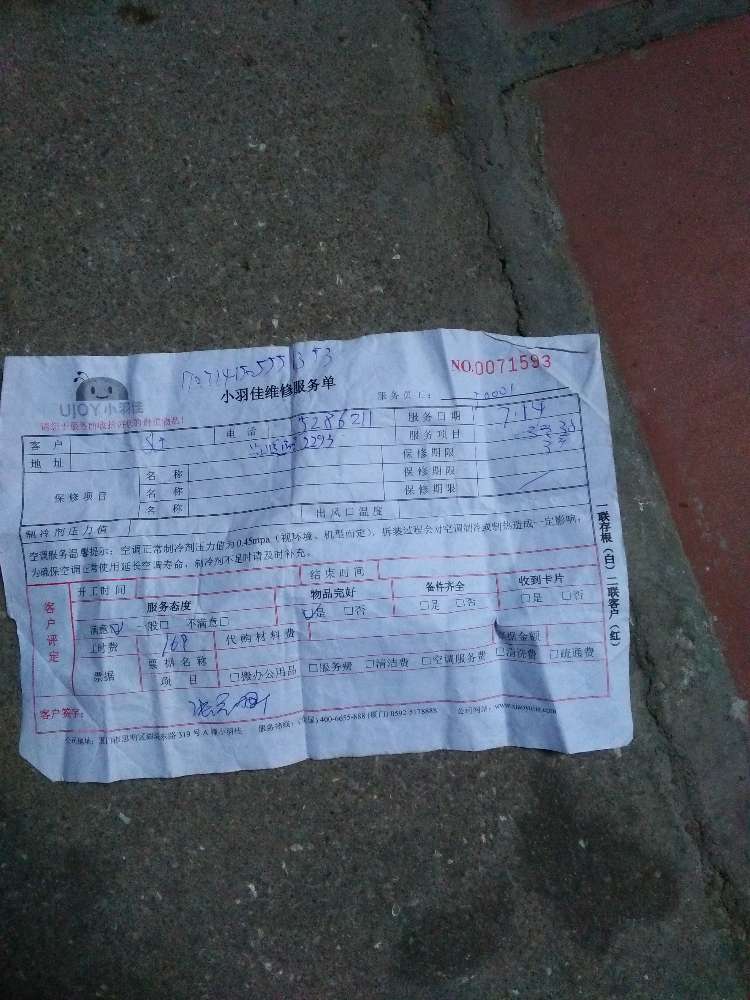 NO.0071593
小羽佳维修服务单
UjOY小羽佳
服务员工：
客户 电话 5286211 服务日期 7.14
地址 服务项目
保修期限
保修项目 名称 保修期限
名称 保修期限
名称
制冷剂压力值 出风口温度
空调服务温馨提示：空调正常制冷剂压力值为0.45mpa（视环境、机型而定），拆装过程会对空调制冷或制热造成一定影响；
为确保空调正常使用延长空调寿命，制冷剂不足时请及时补充。
开工时间 结束时间
客户评定
服务态度 物品完好 备件齐全 收到卡片
满意 一般□ 不满意□ 是 □否 □是 □否 □是 □否
工时费 169 代购材料费
票据 票据名称
项目 □搬办公用品 □服务费 □清洁费 □空调服务费 □清洗费 □疏通费
客户签字：
公司地址：厦门市思明区 东路319号A 小羽佳 服务热线：(全国) 400-6655-888 (厦门) 0592-5178888 公司网站：
联存根（白）二联客户（红）